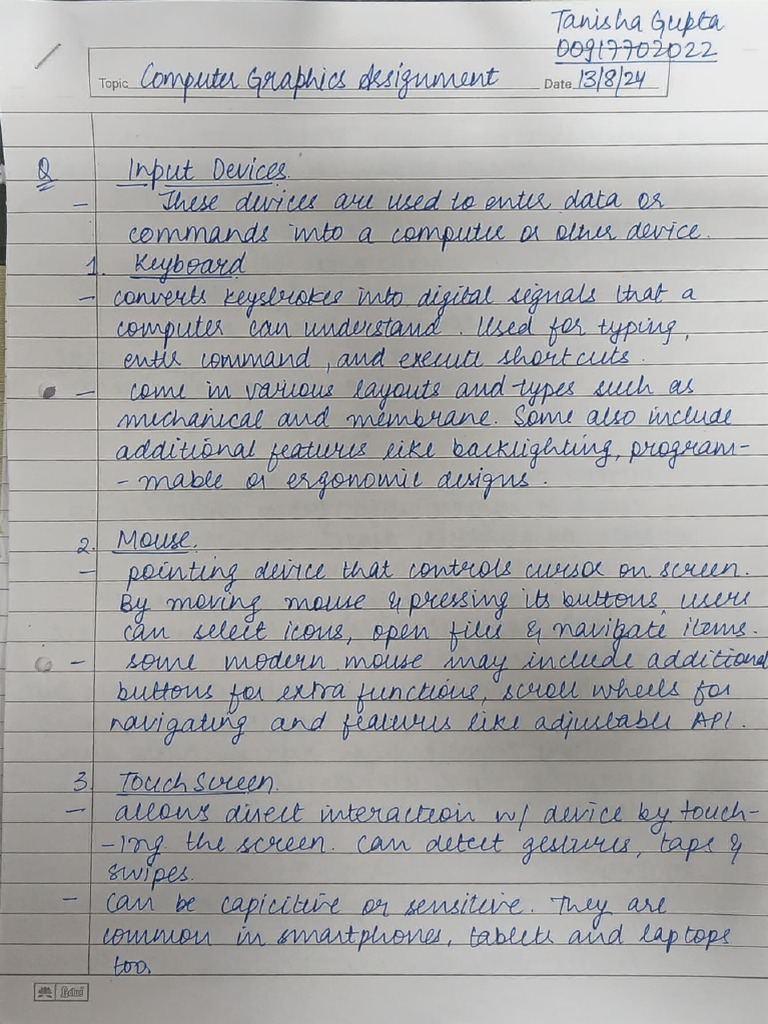 Tanisha Gupta
00917702022
Topic Computer Graphics Assignment Date 13/8/24
Q Input Devices.
- These devices are used to enter data or
commands into a computer or other device.
1. Keyboard
- converts keystrokes into digital signals that a
computer can understand. Used for typing,
enter command, and execute shortcuts.
- come in various layouts and types such as
mechanical and membrane. Some also include
additional features like backlighting, program-
- mable or ergonomic designs.
2. Mouse.
- pointing device that controls cursor on screen.
By moving mouse & pressing its buttons, users
can select icons, open files & navigate items.
- some modern mouse may include additional
buttons for extra functions, scroll wheels for
navigating and features like adjustable API.
3. Touch Screen.
- allows direct interaction w/ device by touch-
- ing the screen. Can detect gestures, taps &
swipes.
- Can be capicitive or sensitive. They are
common in smartphones, tablets and laptops
too.